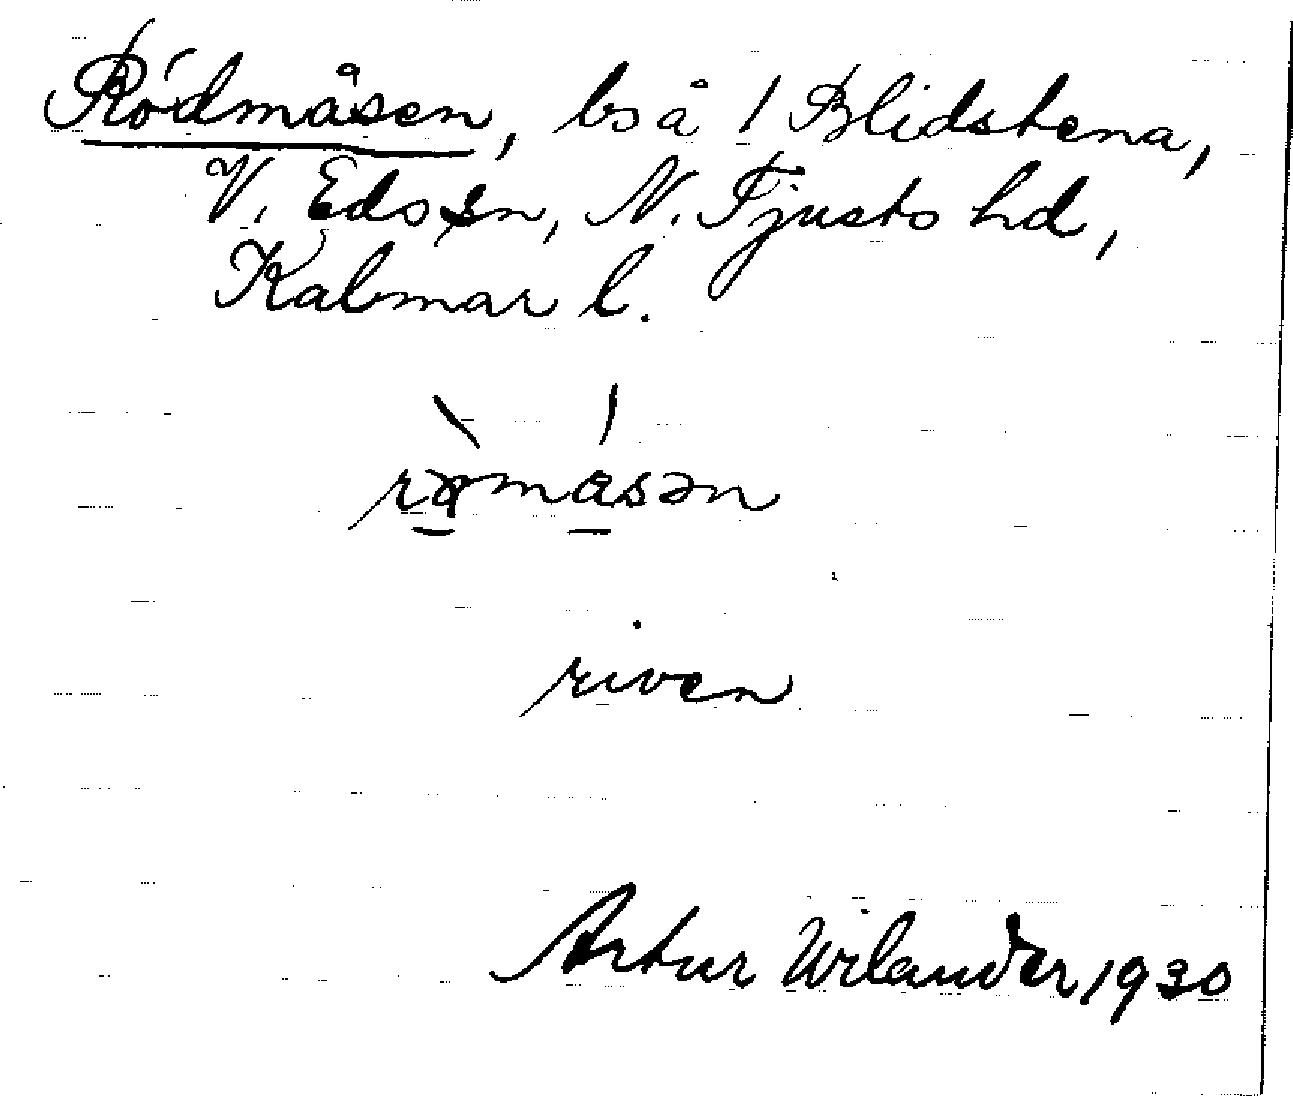 Rödmåsen, bs å 1 Blidstena,
V. Eds sn, N. Tjusts hd,
Kalmar l.
riven
Artur Wilander, 1930